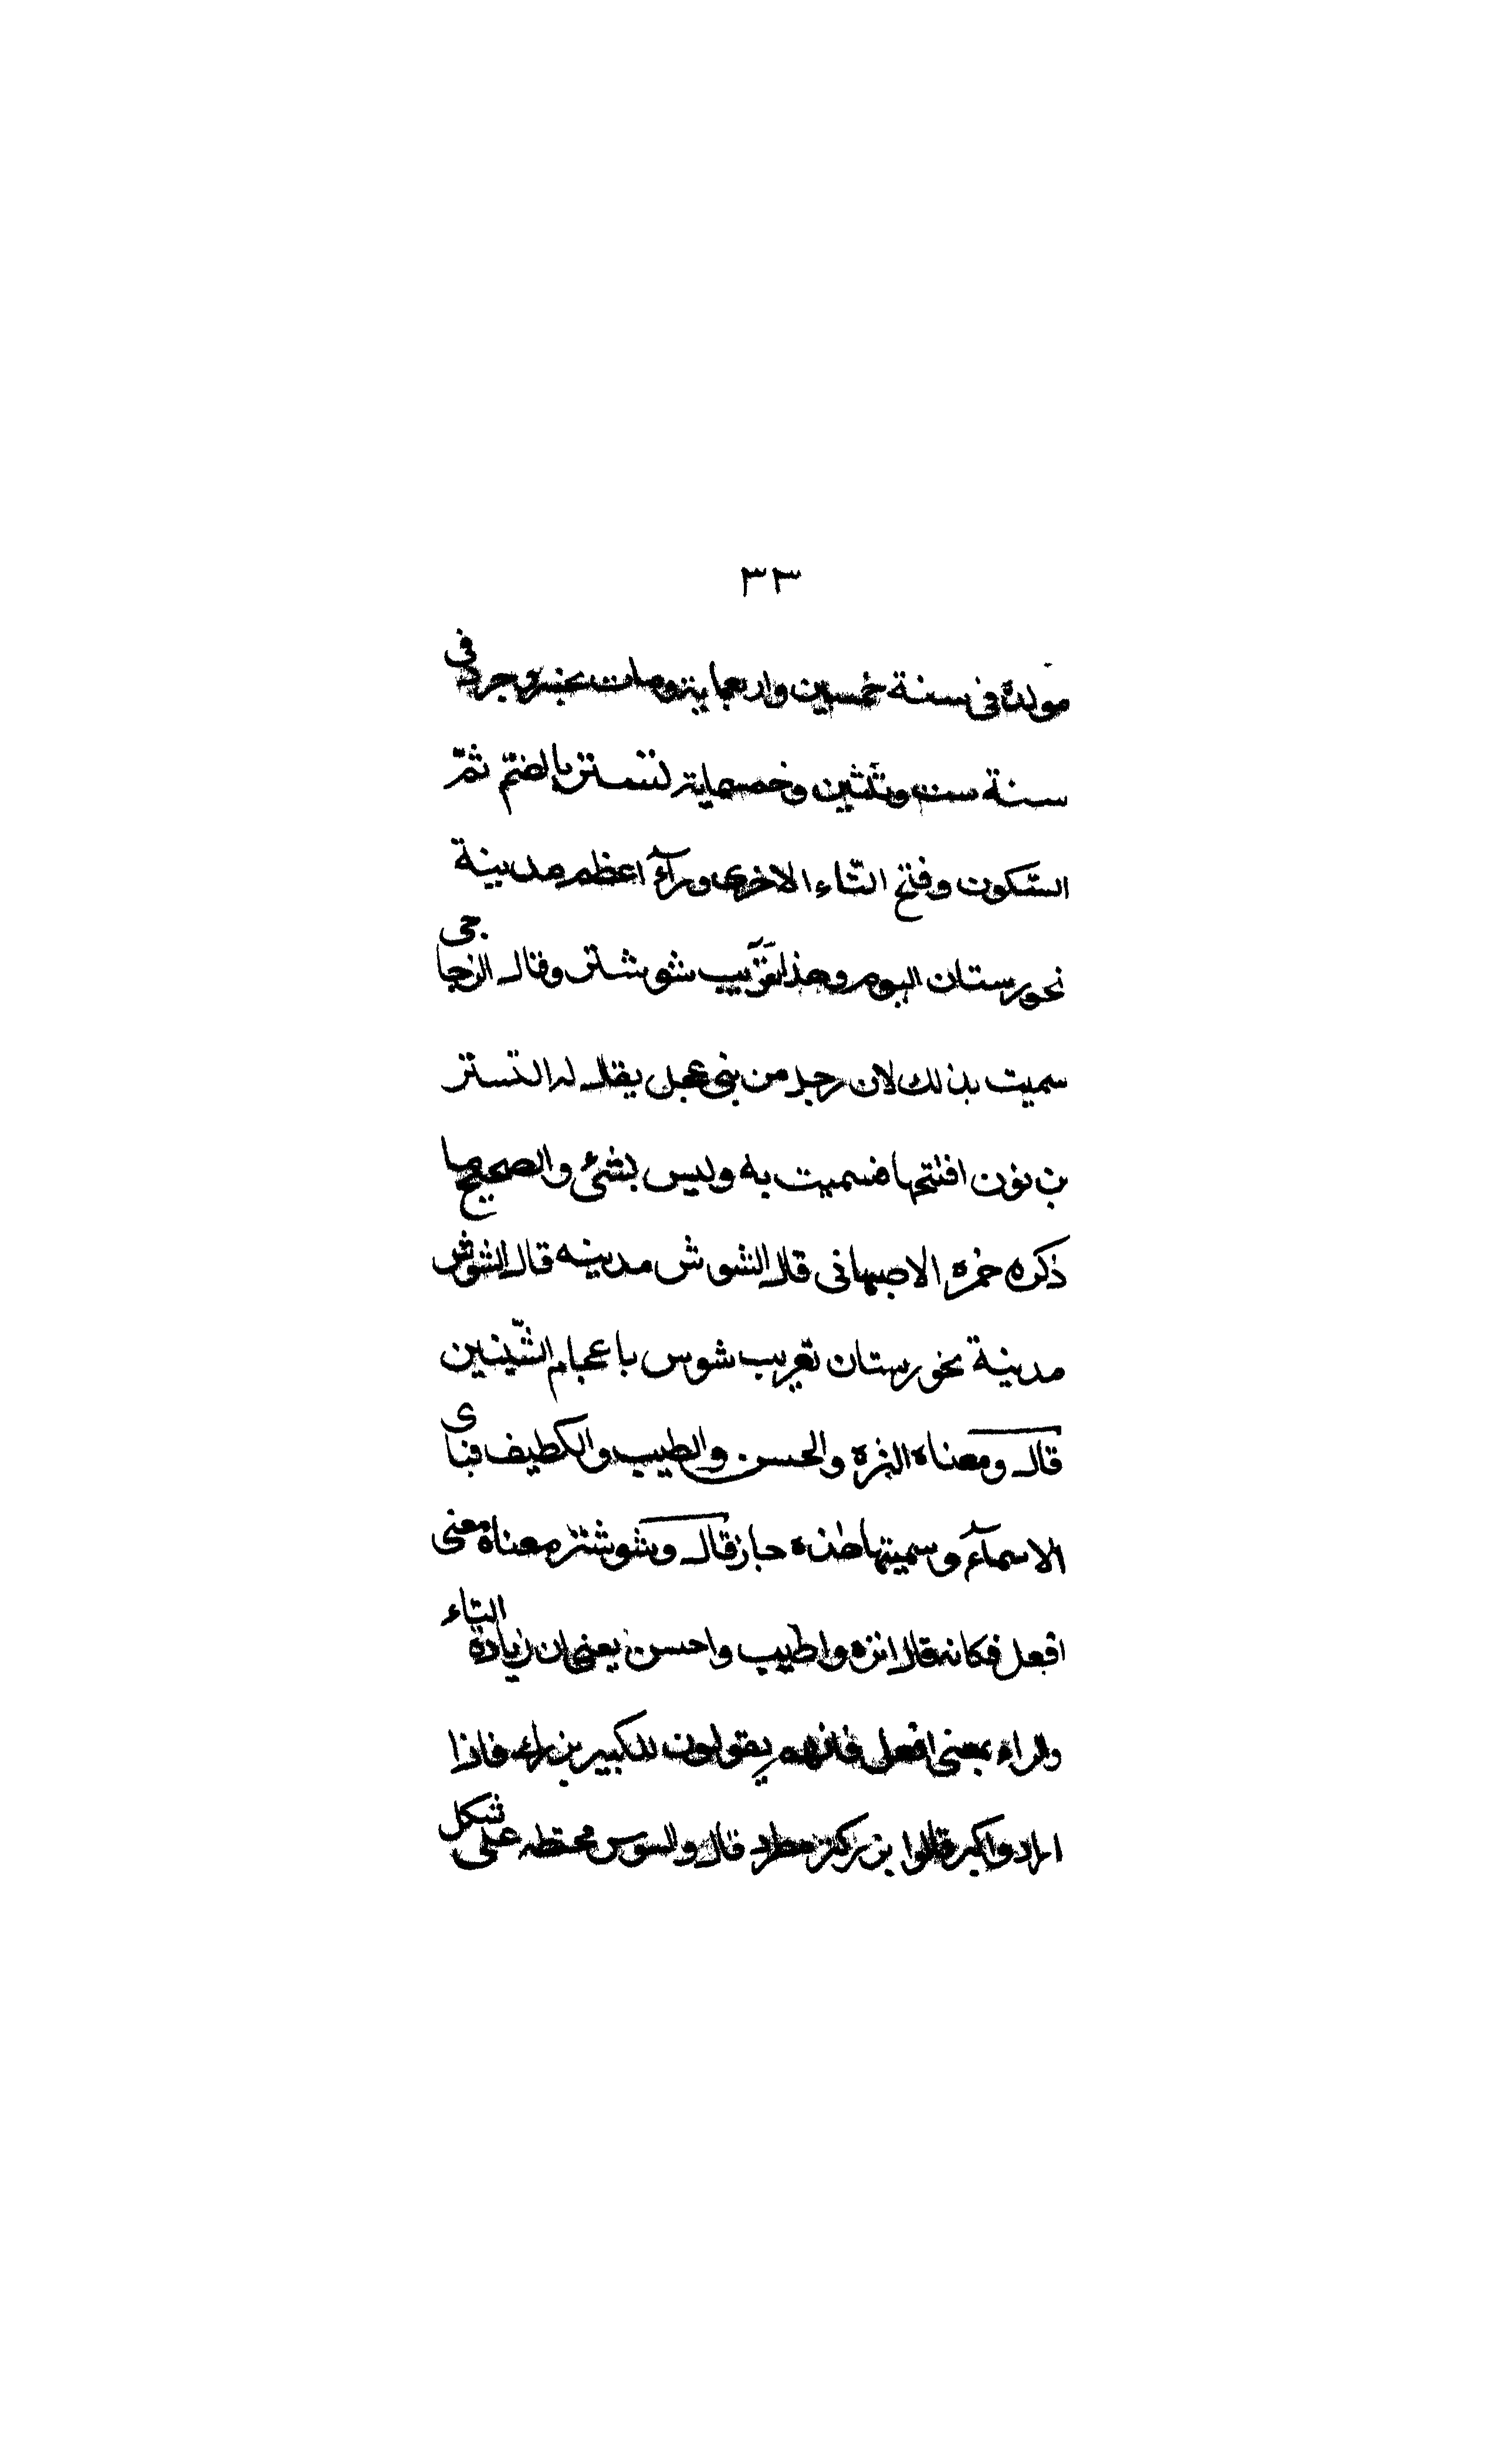 ٣٣
مولده فى سنة خمسين واربعماية ومات بخسروجرد فى
سنة ست وثلثين وخمسماية لتستر بالضم ثمّ
السّكون وفتح التّاء الاخرى ورآء اعظم مدينة
نحورستان اليوم وهذا تعريب شوشتر وقال الزجاجى
سميت بذلك لان رجل من بنى عجل يقال له التستر
بن نون افتتحها فسميت به وليس بشئ والصحيح ما
ذكره حمزه الاصبهانى قال الشوش مدينه قال الشوش
مدينة بخورستان تعريب شوس باعجام الشّينين
قال ومعناه النزه والحسن والطيب والكطيف فباى
الاسمآء وسميتها طذه جاز قال وشوشتر معناه معنى
افعل فكانه قال انزه واطيب واحسن يعنى ان زيادة التاء
والراء بمعنى افعل فانهم يقولون للكبير بزراء فاذا
ارادوا اكبر قالوا بزركتر مطرد قال والسوس محتطه على شكل